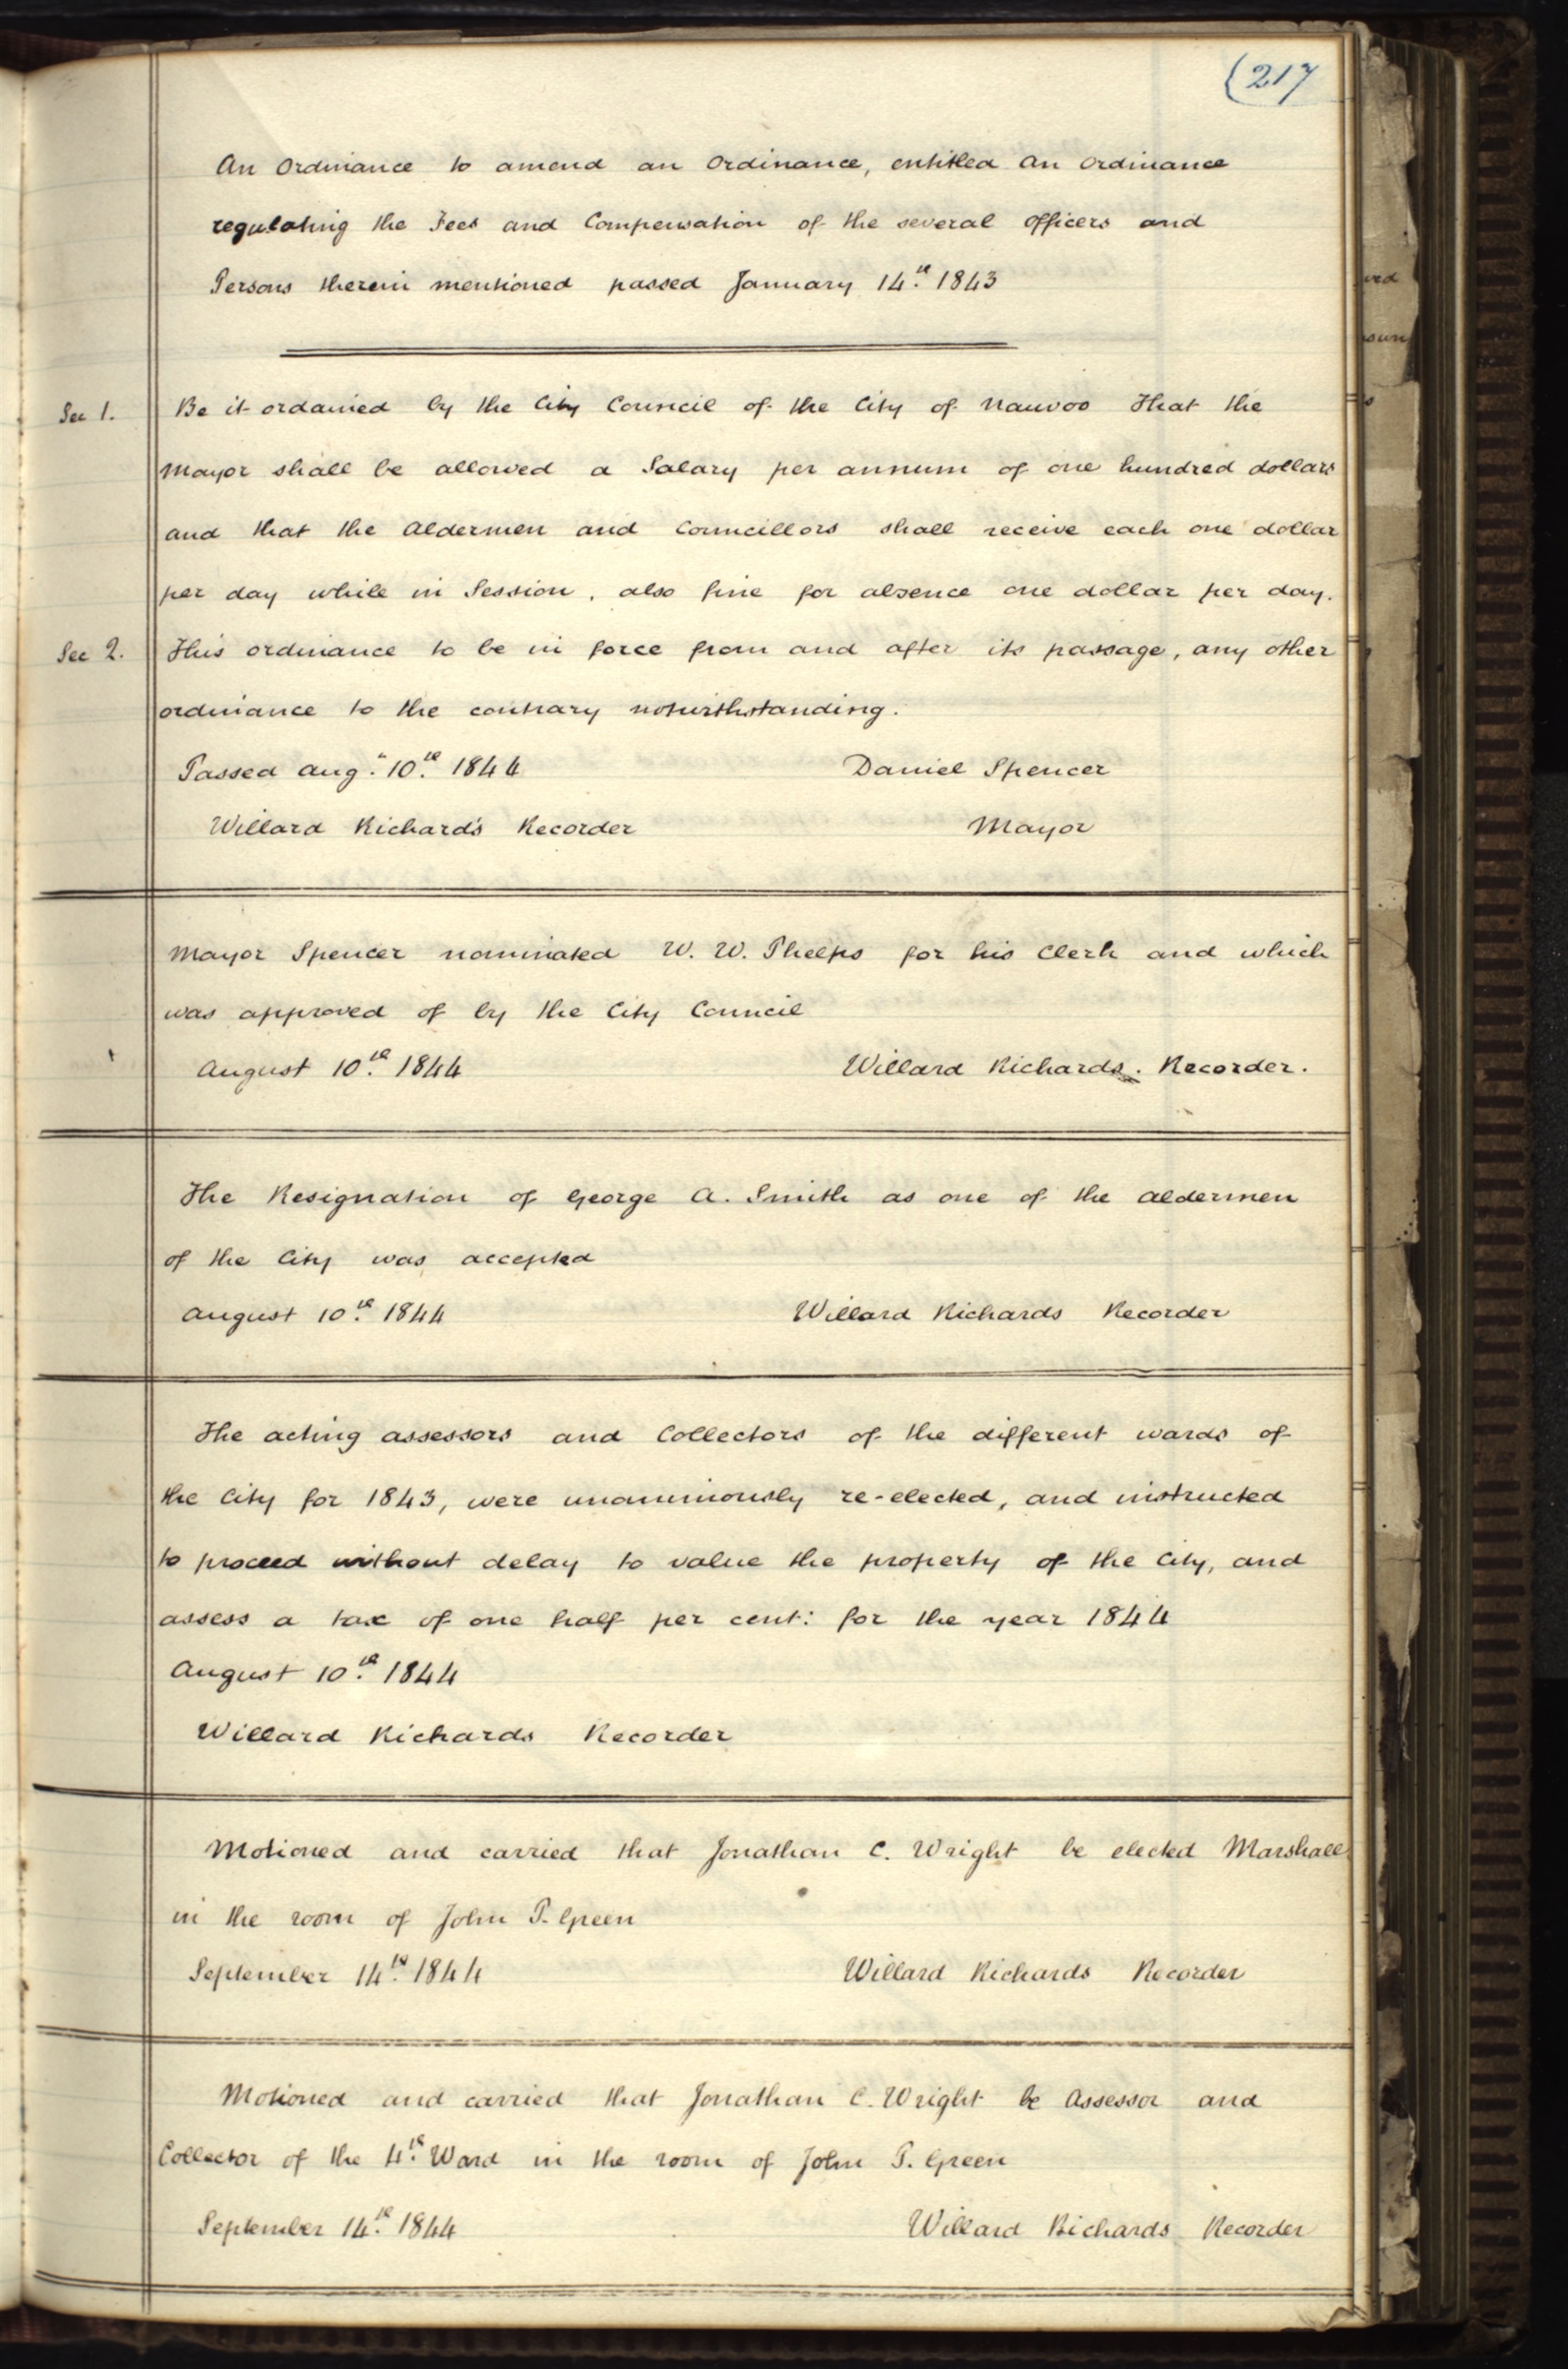 (217
An Ordinance to amend an Ordinance, entitled An Ordinance
regulating the Fees and Compensation of the several officers and
Persons therein mentioned passed January 14th. 1843
Sec 1. Be it ordained by the City Council of the City of Nauvoo That the
Mayor shall be allowed a Salary per annum of one hundred dollars
and that the Aldermen and Councillors shall receive each one dollar
per day while in Session, also fine for absence one dollar per day.
Sec 2. This ordinance to be in force from and after its passage, any other
ordinance to the contrary notwithstanding.
Passed Aug. 10th. 1844 Daniel Spencer
Willard Richards Recorder Mayor
Mayor Spencer nominated W. W. Phelps for his Clerk and which
was approved of by the City Council
August 10th. 1844 Willard Richards. Recorder.
The Resignation of George A. Smith as one of the aldermen
of the City was accepted
August 10th. 1844 Willard Richards Recorder
The acting assessors and Collectors of the different wards of
the City for 1843, were unanimously re-elected, and instructed
to proceed without delay to value the property of the City, and
assess a tax of one half per cent: for the year 1844
August 10th. 1844
Willard Richards Recorder
Motioned and carried that Jonathan C. Wright be elected Marshall
in the room of John P. Green
September 14th. 1844 Willard Richards Recorder
Motioned and carried that Jonathan C. Wright be Assessor and
Collector of the 4th. Ward in the room of John P. Green
September 14th. 1844 Willard Richards Recorder